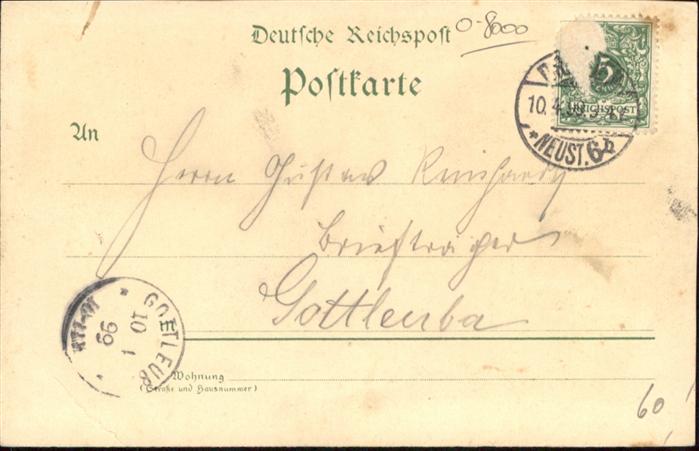 Deutsche Reichspost
0-8000
Postkarte
5
REICHSPOST
10.4.
*NEUST.6b
An
Herrn Gustav Reinhardt
Briefträger
Gottleuba
GOTTLEUBA
10
99
Wohnung
(Straße und Hausnummer)
60